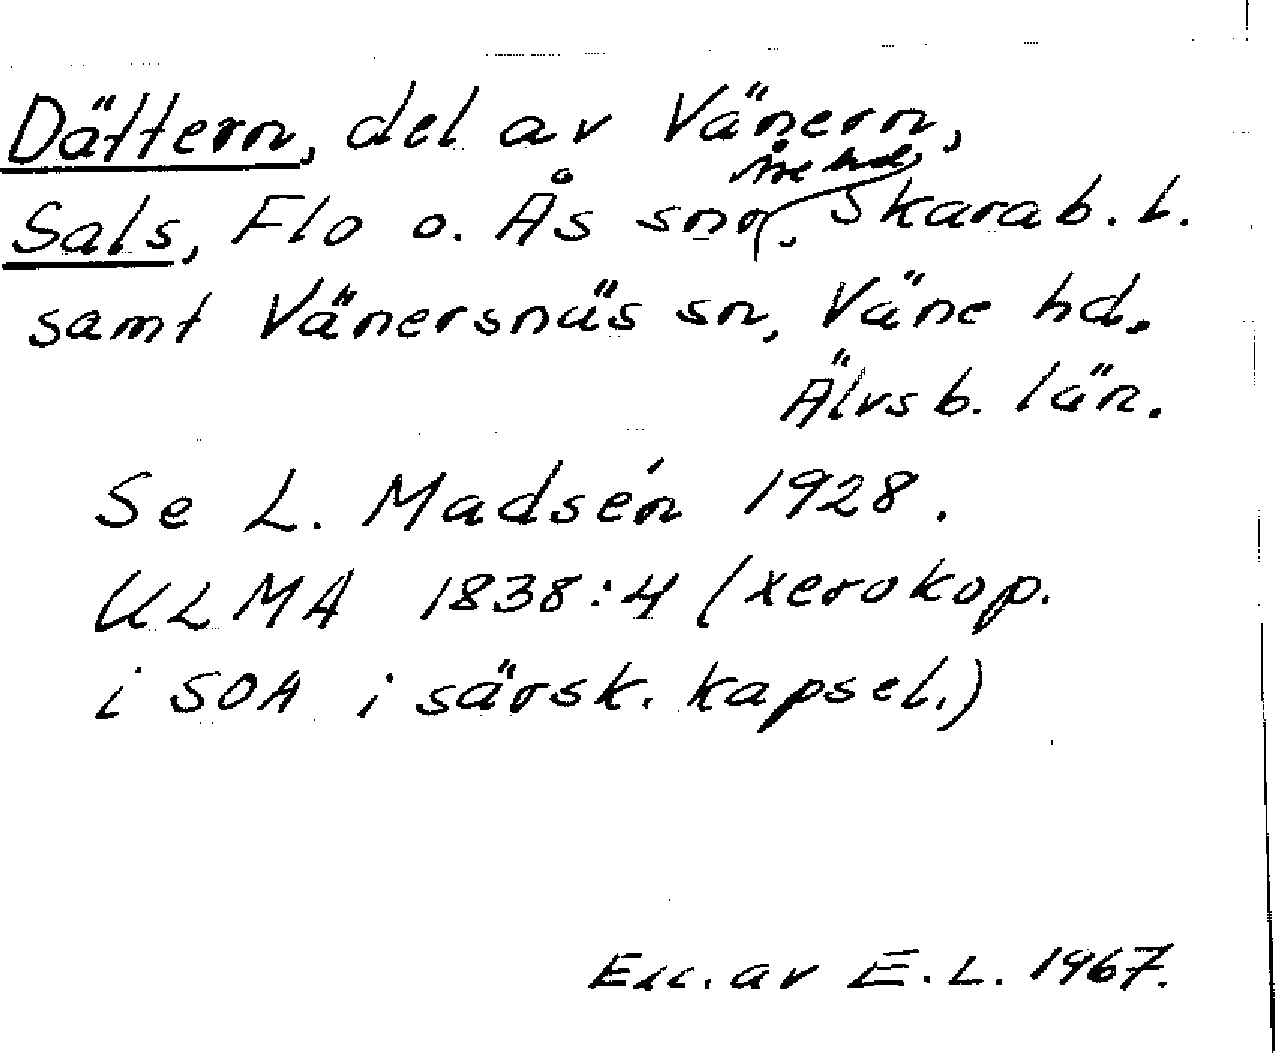 Dättern, del av Vänern,
Sals, Flo o. Ås snr, Åse hd, Skarab. l.
samt Vänersnäs sn, Väne hd.
Älvsb. län.
Se L. Madsén 1928.
ULMA 1838:4 (xerokop.
i SOA i särsk. kapsel.)
Exc. av E. L. 1967.